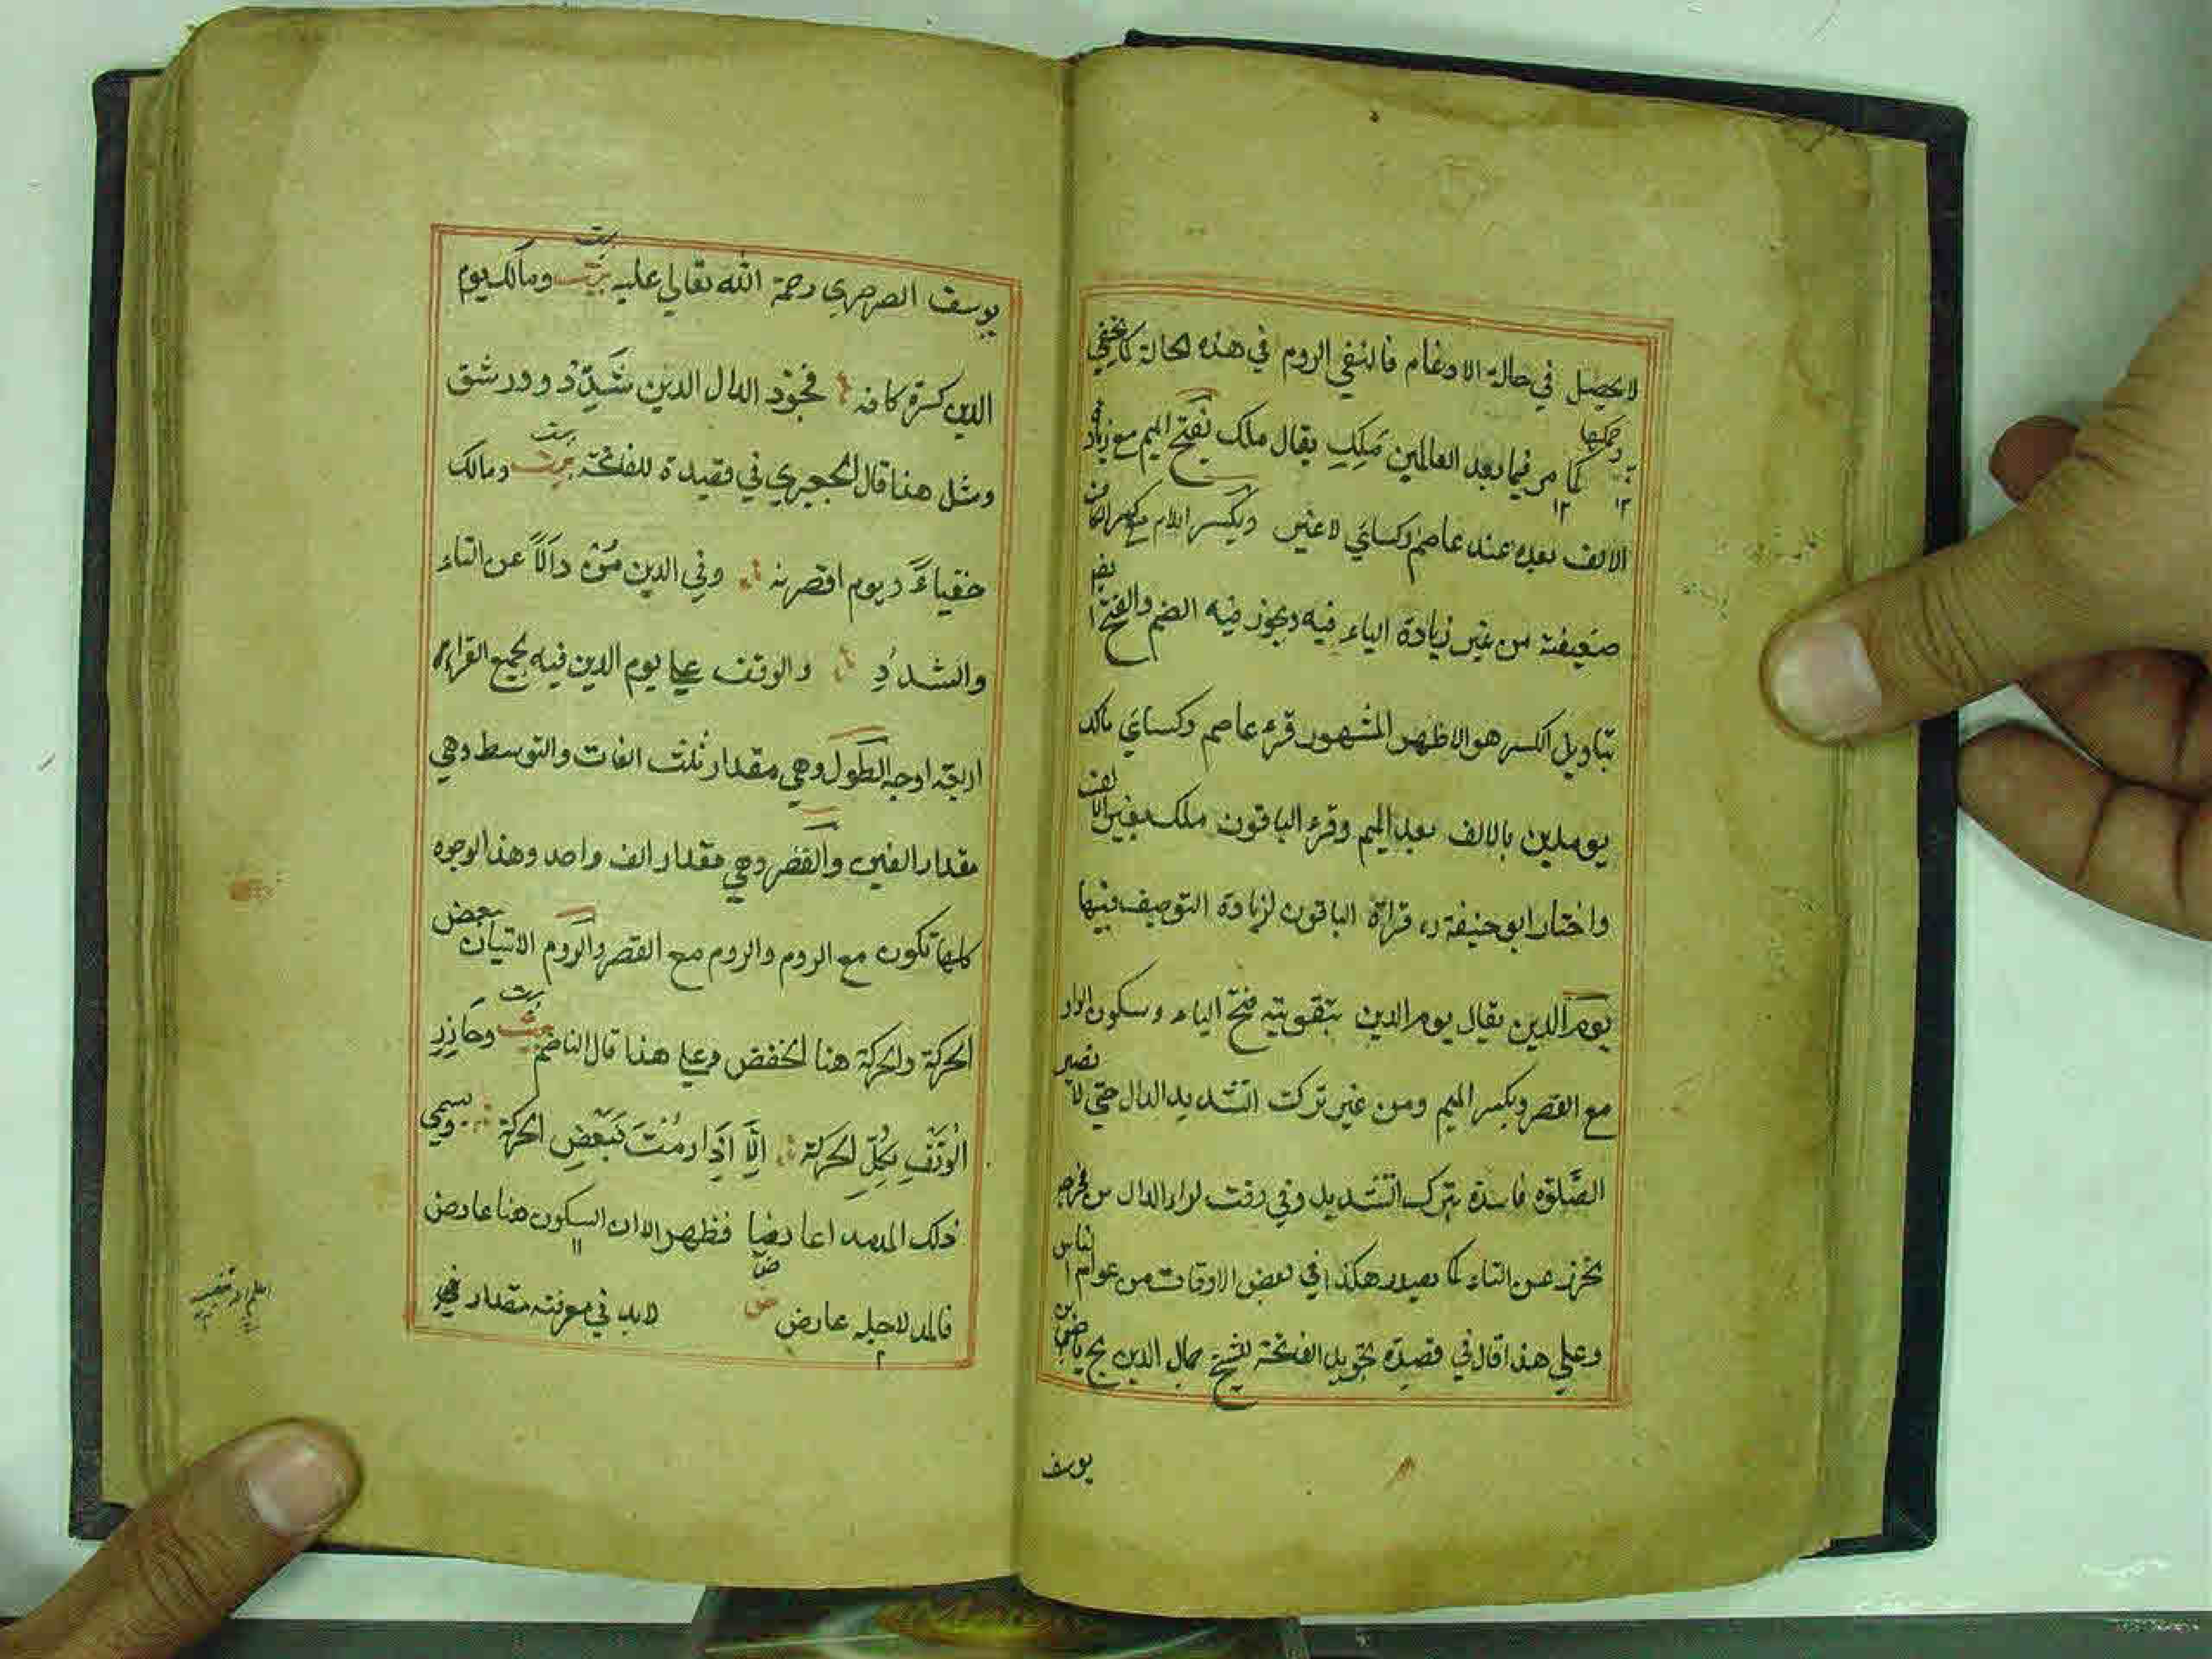 لا يحصل في حالة الادغام فالنفي الروم في هذه الحالة كما يخفي
كما مر فيما بعد العالمين مٰلِكِ يقال ملك بفتح الميم مع زيادة
الالف بعده عند عاصم وكسائي لاغير وبكسر اللام مع كسر الكاف
ضعيفة من غير زيادة الياء فيه ويجوز فيه الضم والفتح
بتاويل الكسر هو الاظهر المشهور قرء عاصم وكسائي مالك
يوم الدين بالالف بعد الميم وقرء الباقون ملك بغير الالف
واختار ابو حنيفة رح قراة الباقون لزيادة التوصيف فيها
يوم الدين يقال يوم الدين بتقوية فتح الياء وسكون الواو
مع القصر وبكسر الميم ومن غير ترك التشديد الدال حتي لا تصير
الصَّلوة فاسدة بترك التشديد وفي وقت اراد الدال من مخرجه
يحرز عن التاء كما يصدر هكذا في بعض الاوقات من عوام الناس
وعلي هذا قال في قصيدة تجويد الفاتحة للشيخ جمال الدين
يوسف
يوسف الصرصري رحمة الله تعالي عليه بيت ومالك يوم
الدين كسرة كافه فجوّد الدال الدين شَدِّدْ وورشق
ومثل هذا قال الجعبري في قصيدة للفاتحة بيت ومالك
خفياءً ويوم اقصرنه وفي الدين دالاً عن التاء
والشدد والوقف علي يوم الدين فيه لجميع القراء
اربعة اوجه الطول وهي مقدار ثلث الفات والتوسط وهي
مقدار الفين والقصر وهي مقدار الف واحد وهذا الوجوه
كلها تكون مع الروم والروم مع القصر والروم الاتيان بعض
الحركة والحركة هنا الخفض وعلي هذا قال الناظم بيت وحَاذِرِ
الْوَقْفَ بِكُلِّ الحركة اِلَّا اِذَا رُمْتَ فَبَعْضِ الحركة ويسمي
ذلك المد مدا عارضا فظهر الان ان السكون هنا عارض
فالمد لاجله عارض لابد في معرفته مقدار